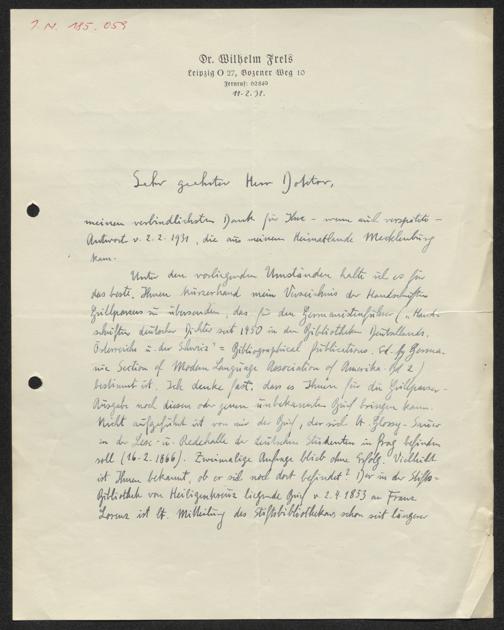 I. N. 185.059
Dr. Wilhelm Frels
Leipzig O 27, Bozener Weg 10
Fernruf: 62849
11.2.31.
Sehr geehrter Herr Doktor,
meinen verbindlichsten Dank für Ihre – wenn auch verspätete –
Antwort v. 2.2.1931, die aus meinem Heimatlande Mecklenburg
kam.
Unter den vorliegenden Umständen halte ich es für
das beste, Ihnen kurzerhand mein Verzeichnis der Handschriften
Grillparzers zu übersenden, das für den Germanistenführer („Hand-
schriften deutscher Dichter seit 1450 in den Bibliotheken Deutschlands,
Österreichs u. der Schweiz" = Bibliographical Publications. Ed. by Germa-
nic Section of Modern Language Association of Amerika. Bd 2)
bestimmt ist. Ich denke fast, dass es Ihnen für die Grillparzer-
Ausgabe noch diesen oder jenen unbekannten Brief bringen kann.
Nicht aufgeführt ist von mir der Brief, der sich lt. Glossy-Sauer
in der Lese- u. Redehalle der deutschen Studenten in Prag befinden
soll (16.2.1866). Zweimalige Anfrage blieb ohne Erfolg. Vielleicht
ist Ihnen bekannt, ob er sich noch dort befindet? Der in der Stifts-
Bibliothek von Heiligenkreuz liegende Brief v. 2.4.1853 an Franz
Lorenz ist lt. Mitteilung des Stiftsbibliothekars schon seit längerer